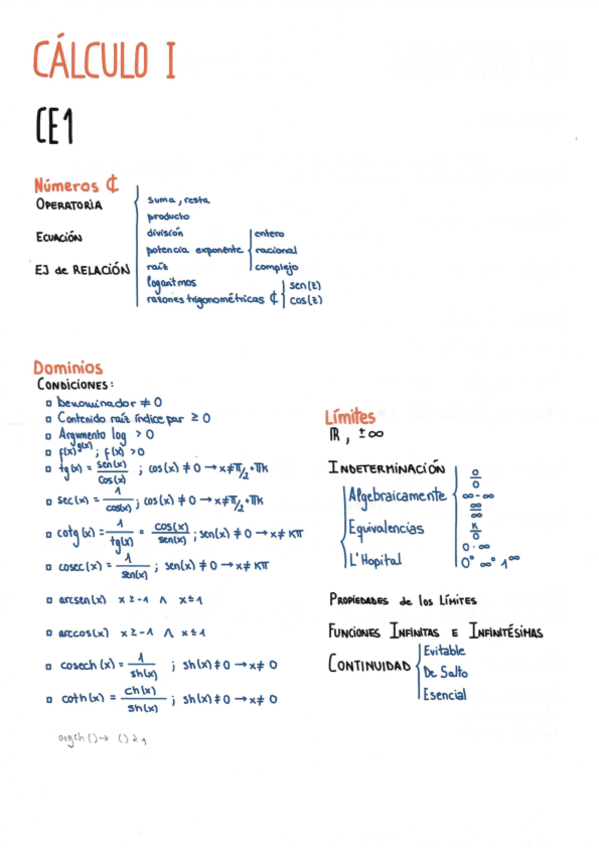 CÁLCULO I
CE1
Números ₵
OPERATORIA
ECUACIÓN
EJ de RELACIÓN
suma, resta
producto
división
potencia exponente
entero
racional
complejo
raíz
logaritmos
razones trigonométricas ₵
sen(z)
cos(z)
Dominios
CONDICIONES:
▫ Denominador ≠ 0
▫ Contenido raíz índice par ≥ 0
▫ Argumento log > 0
▫ f(x)^g(x) ; f(x) > 0
▫ tg(x) = sen(x)/cos(x) ; cos(x) ≠ 0 → x ≠ π/2 + πk
▫ sec(x) = 1/cos(x) ; cos(x) ≠ 0 → x ≠ π/2 + πk
▫ cotg(x) = 1/tg(x) = cos(x)/sen(x) ; sen(x) ≠ 0 → x ≠ kπ
▫ cosec(x) = 1/sen(x) ; sen(x) ≠ 0 → x ≠ kπ
▫ arcsen(x) x ≥ -1 ∧ x ≤ 1
▫ arccos(x) x ≥ -1 ∧ x ≤ 1
▫ cosech(x) = 1/sh(x) ; sh(x) ≠ 0 → x ≠ 0
▫ coth(x) = ch(x)/sh(x) ; sh(x) ≠ 0 → x ≠ 0
argch () → () ≥ 1
Límites
ℝ, ±∞
INDETERMINACIÓN
Algebraicamente
Equivalencias
L'Hopital
0/0
∞ - ∞
∞/∞
k/0
0 · ∞
0° ∞° 1^∞
PROPIEDADES de los LÍMITES
FUNCIONES INFINITAS E INFINITÉSIMAS
CONTINUIDAD
Evitable
De Salto
Esencial